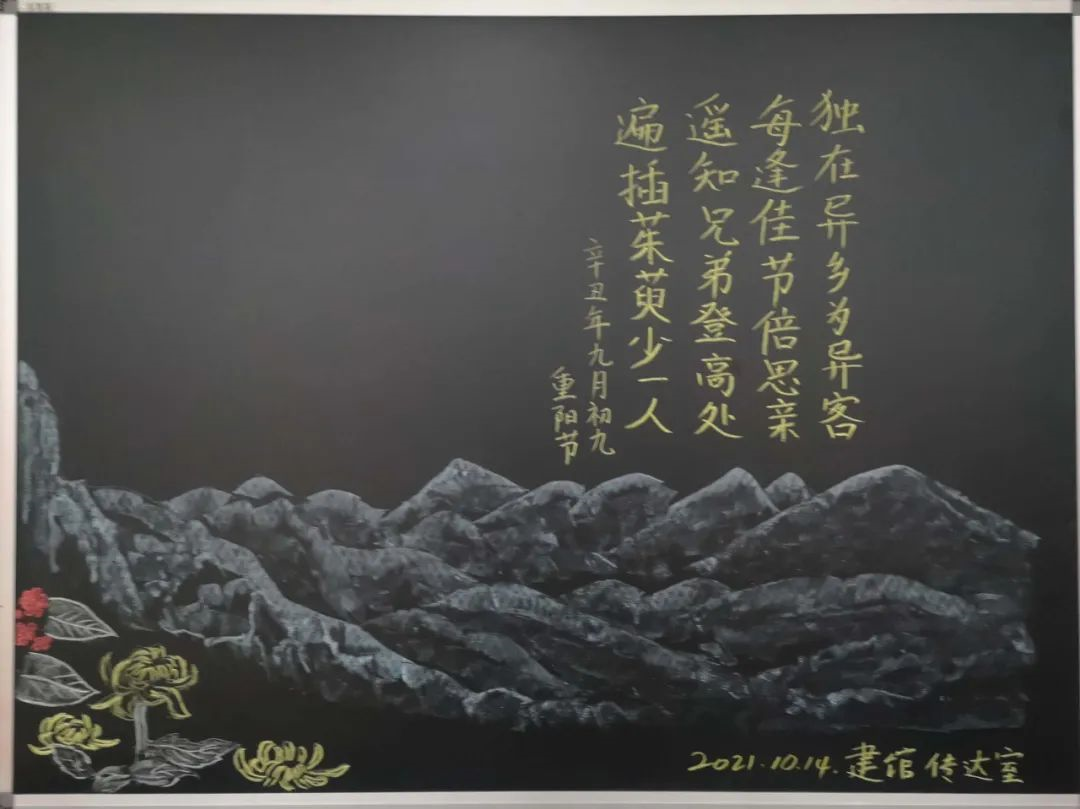 独在异乡为异客
每逢佳节倍思亲
遥知兄弟登高处
遍插茱萸少一人
辛丑年九月初九
重阳节
2021.10.14.建馆传达室